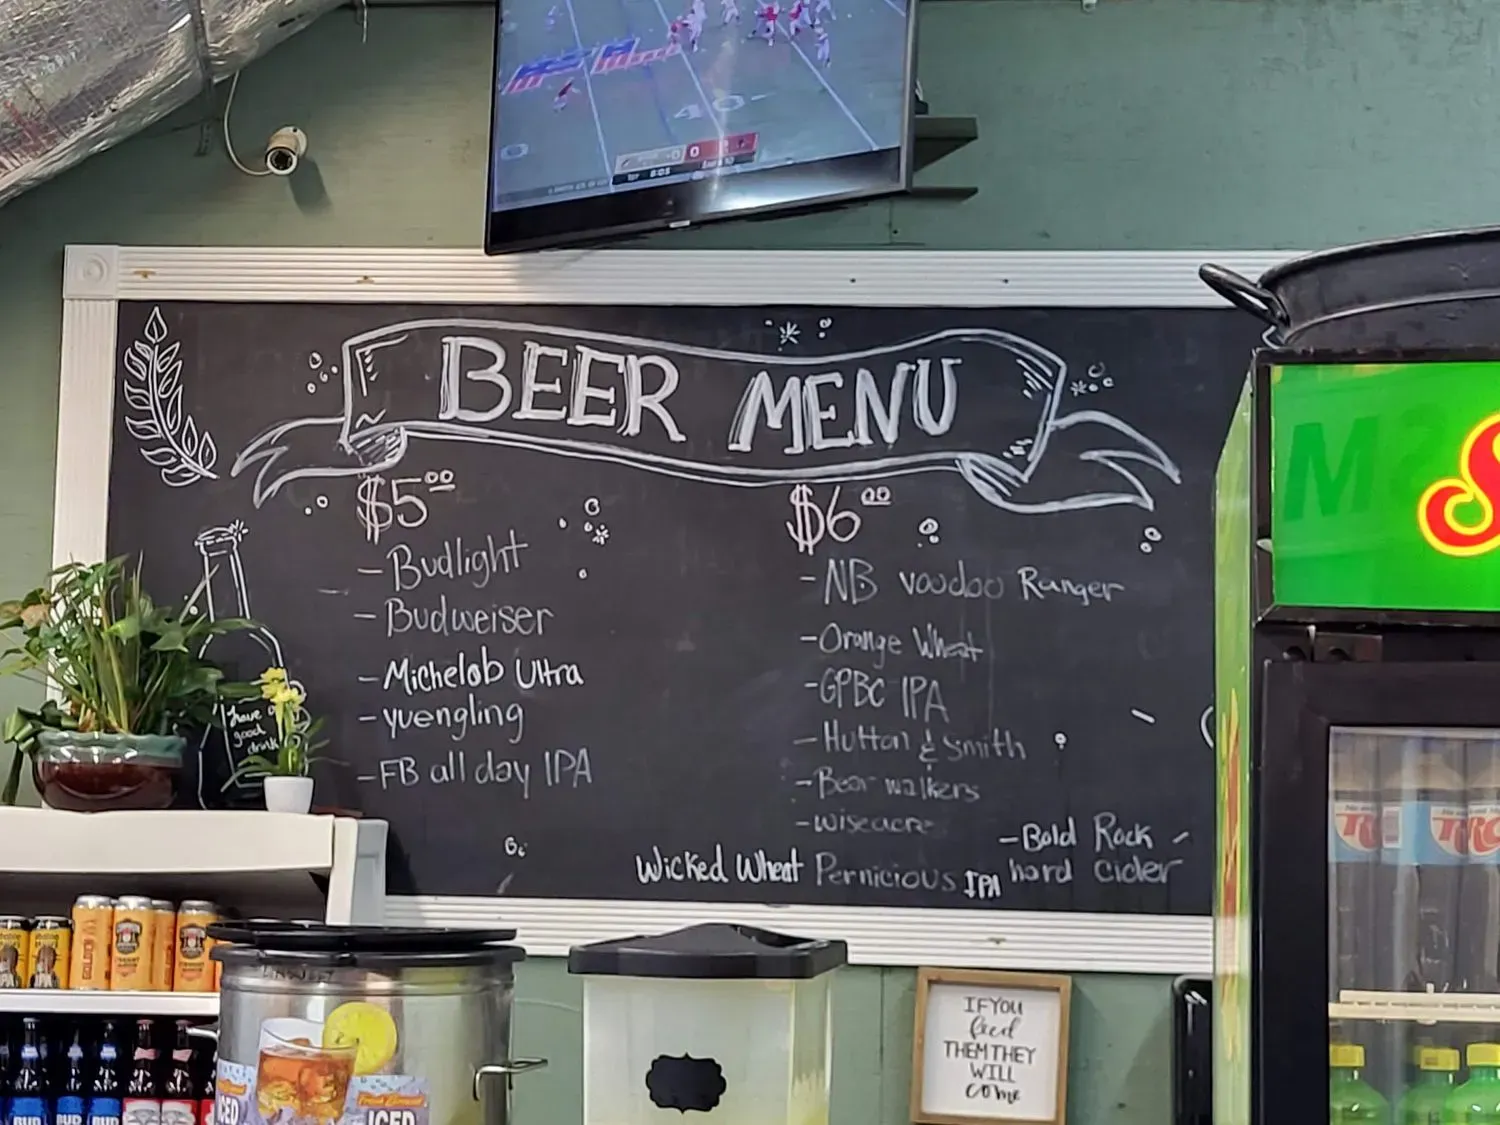 40
0
1ST 8:05
BEER MENU
$5.00
- Budlight
- Budweiser
- Michelob Ultra
- yuengling
- FB all day IPA
$6.00
- NB voodoo Ranger
- Orange Wheat
- GPBC IPA
- Hutton & Smith
- Bear walkers
- wiseacre
- Bold Rock -
hard cider
Wicked Wheat Pernicious IPA
have a
good
drink
IF YOU
feed
THEM THEY
WILL
come
UNSWEET
ICED
ICED
BUD
BUD
BUD
IPA
GOLDEN
SM
S
RC